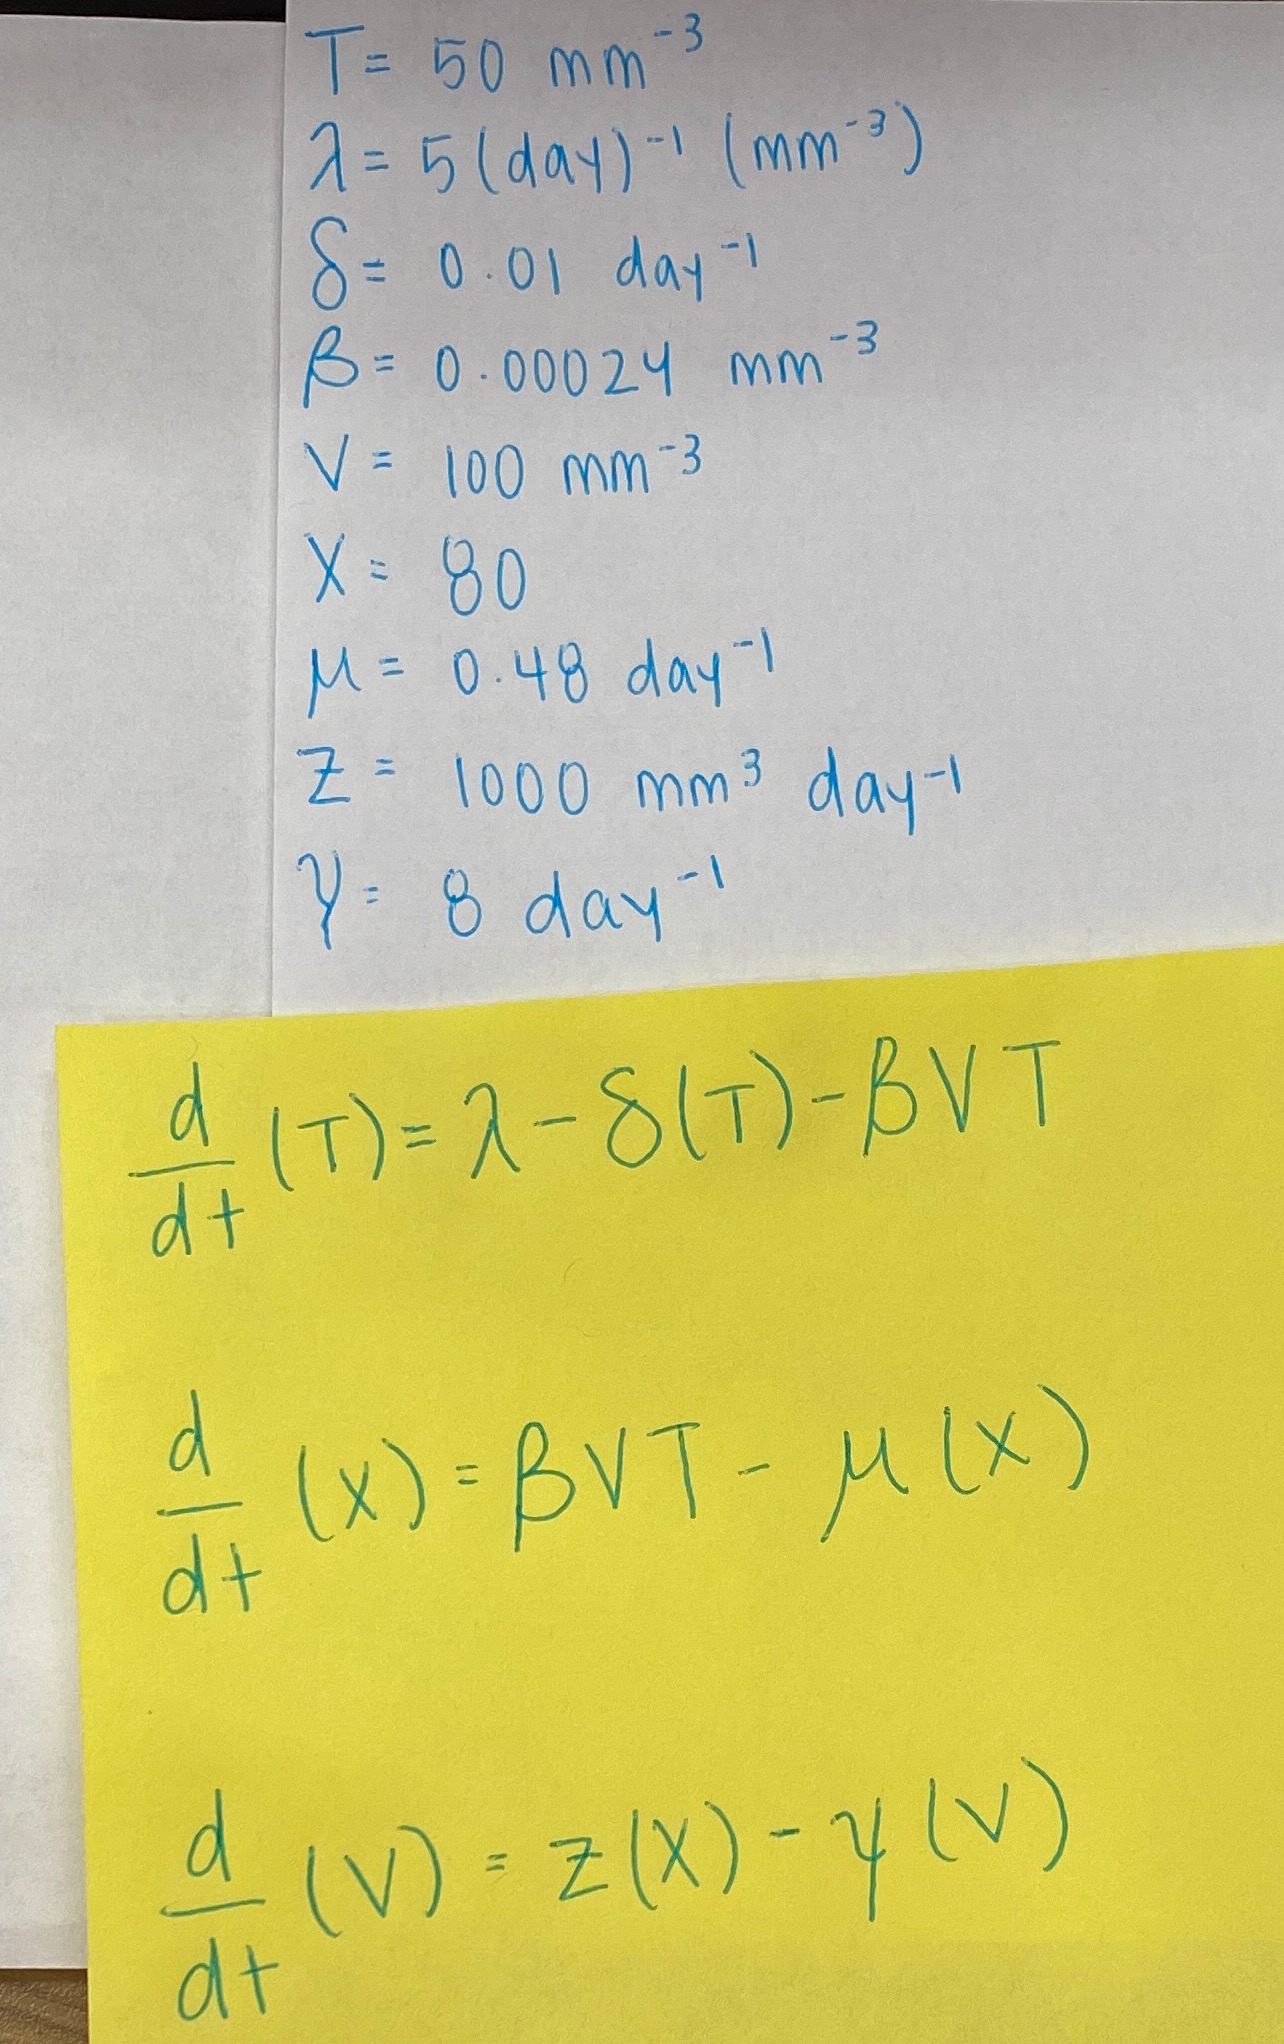 T= 50 mm⁻³
λ= 5(day)⁻¹ (mm⁻³)
δ= 0.01 day⁻¹
β= 0.00024 mm⁻³
V= 100 mm⁻³
X= 80
μ= 0.48 day⁻¹
Z= 1000 mm³ day⁻¹
γ= 8 day⁻¹
d/dt (T)= λ - δ(T) - βVT
d/dt (X)= βVT - μ(X)
d/dt (V) = z(X) - γ(V)